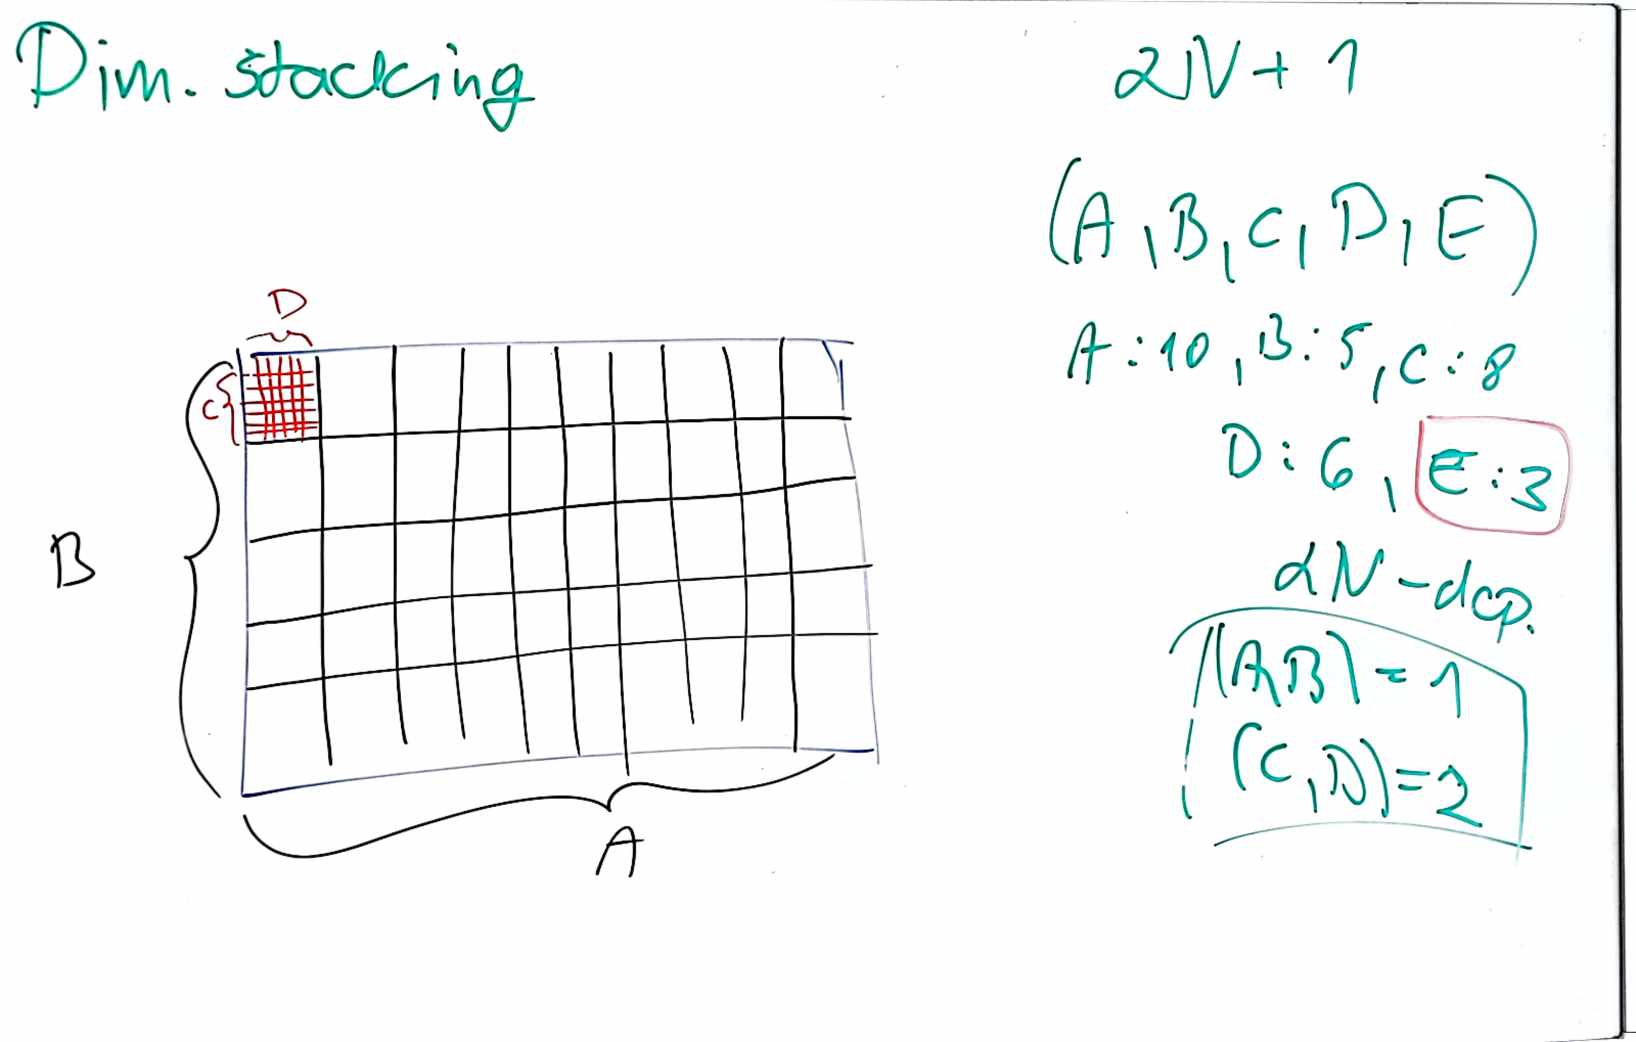 Dim. stacking
2N + 1
(A, B, C, D, E)
A: 10, B: 5, C: 8
D: 6, E: 3
2N - dep.
(A,B) = 1
(C, D) = 2
D
C
B
A